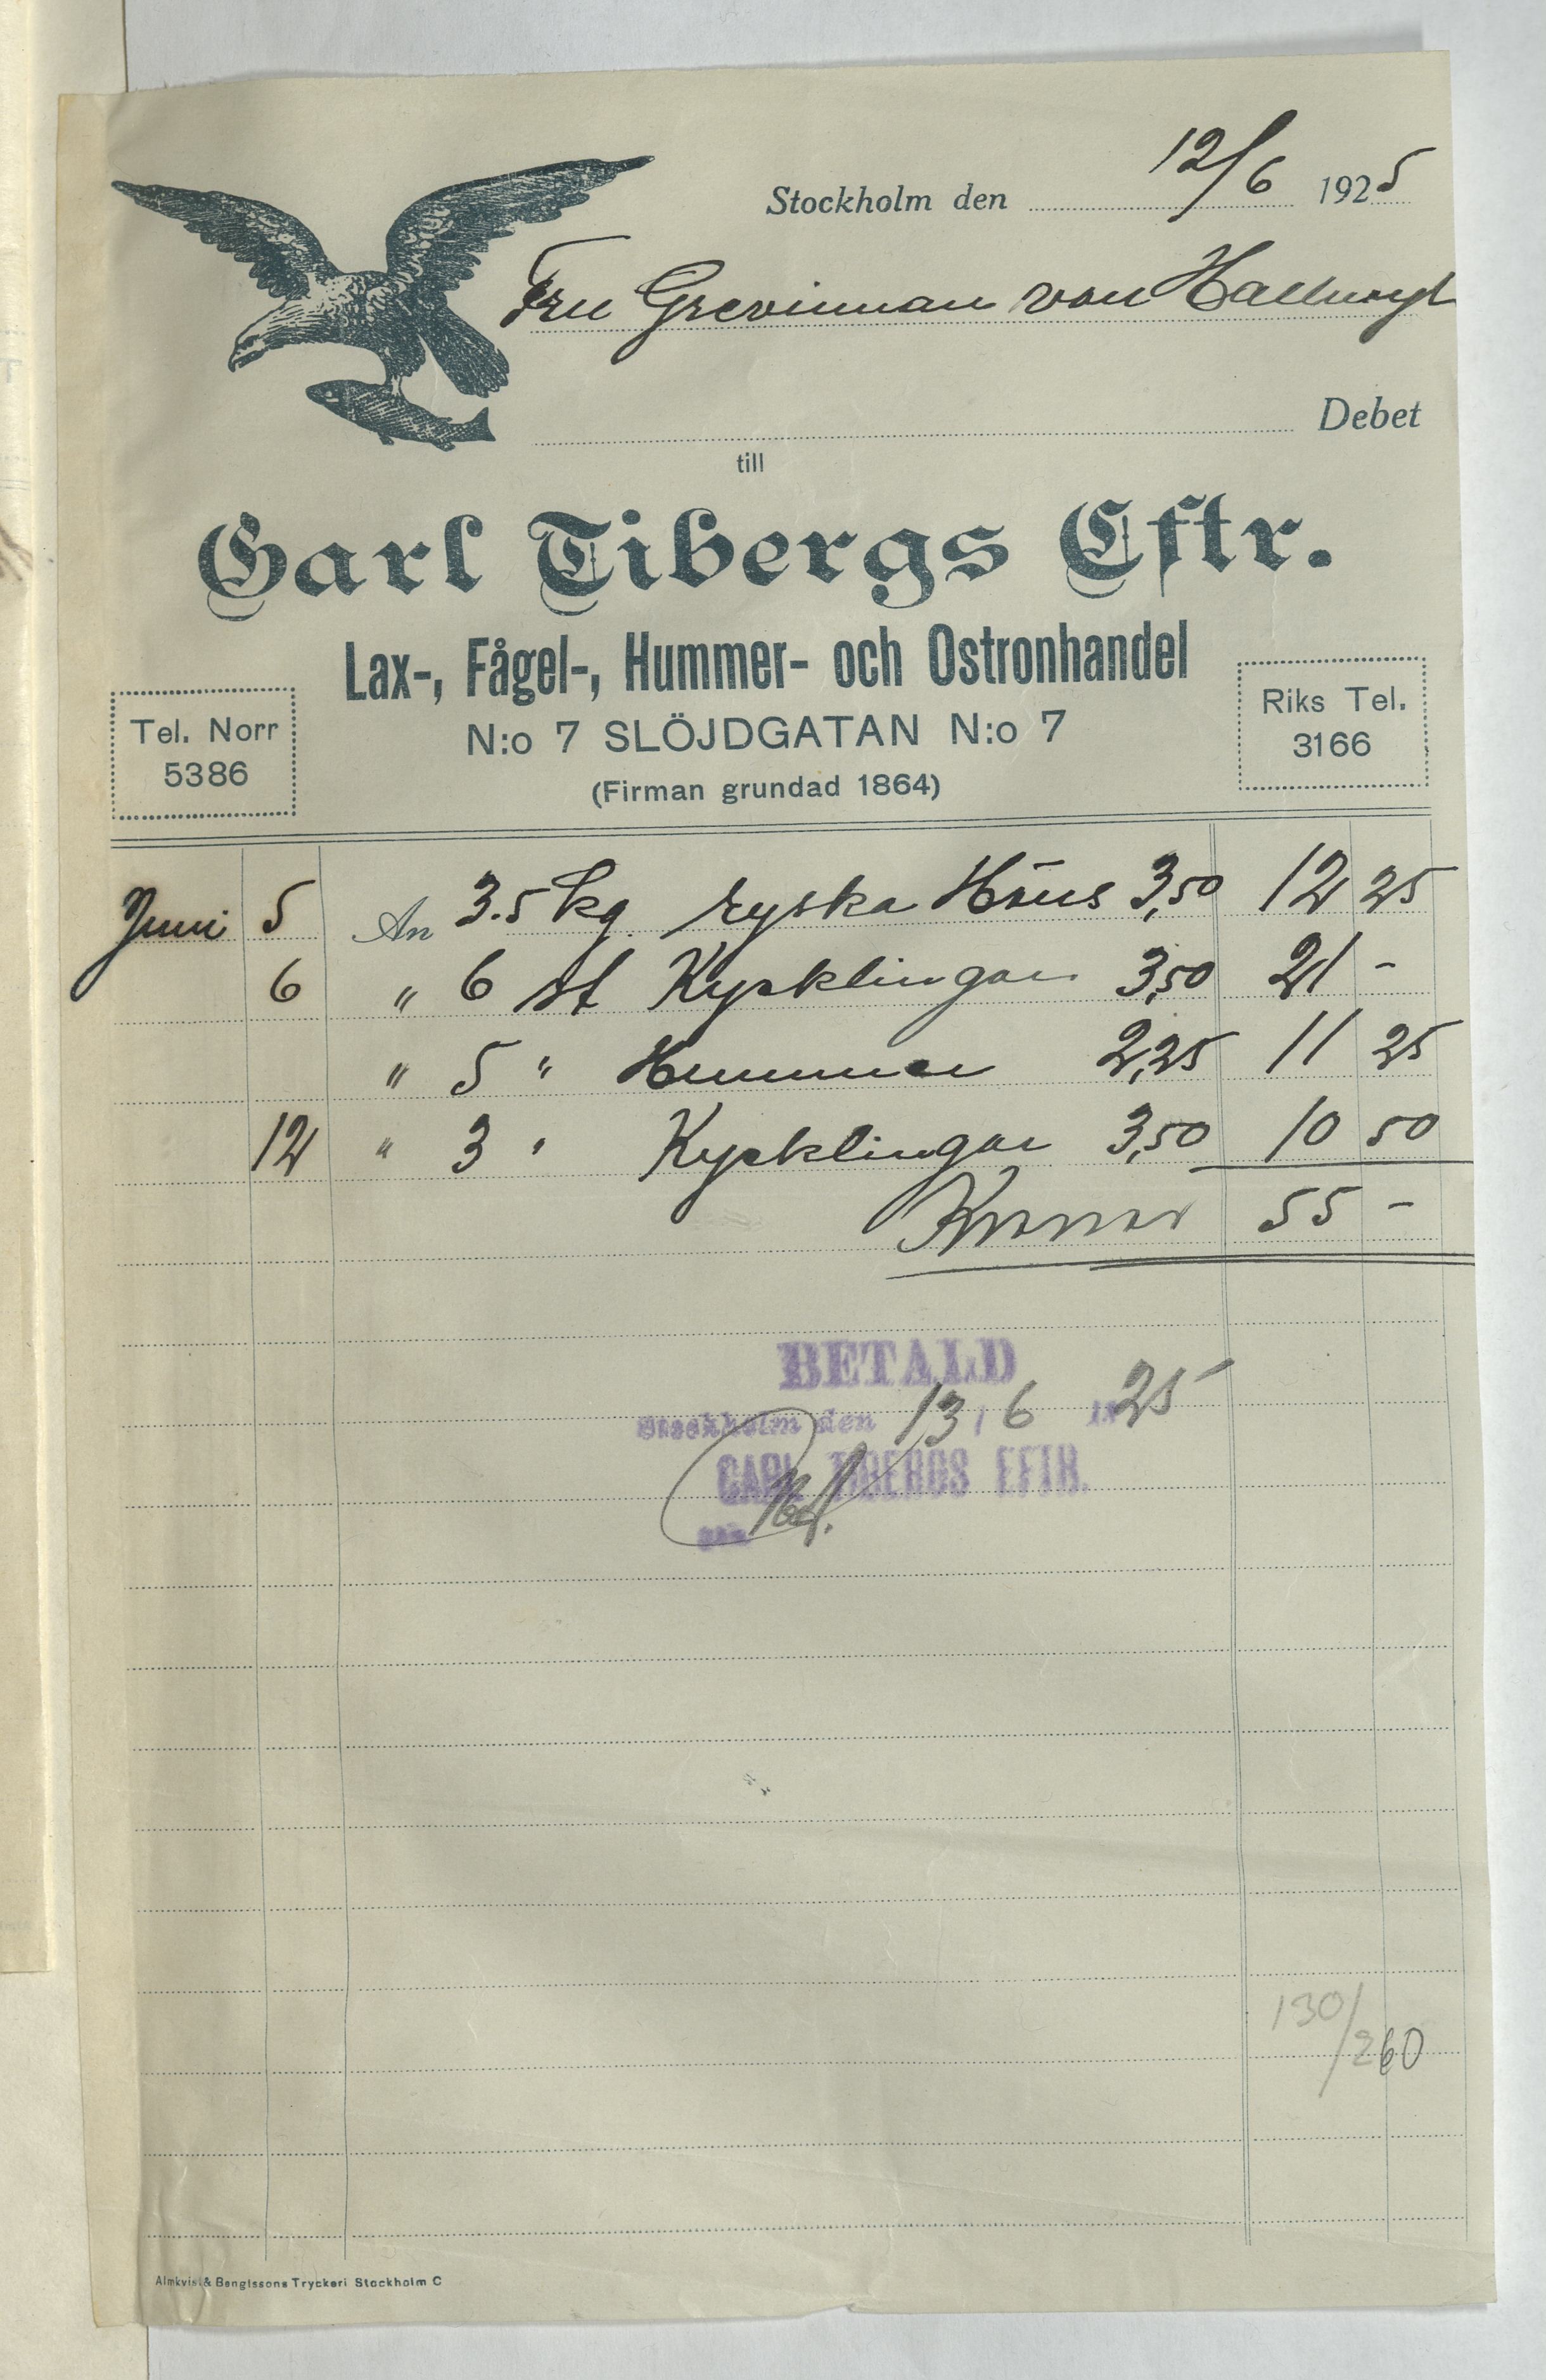 Stockholm den 12/6 1925
Fru Grevinnan von Hallwyl
Debet
till
Carl Tibergs Eftr.
Lax-, Fågel-, Hummer- och Ostronhandel
N:o 7 SLÖJDGATAN N:o 7
(Firman grundad 1864)
Tel. Norr
5386
Riks Tel.
3166
Juni 5 An 3.5 kg. ryska Höns 3,50 12 25
6 " 6 st Kycklingar 3,50 21 -
" 5 " Hummer 2,25 11 25
12 " 3 " Kycklingar 3,50 10 50
Kronor 55 -
BETALD
Stockholm den 13/6 1925
CARL TIBERGS EFTR.
130/260
Almkvist & Bengtssons Tryckeri Stockholm C